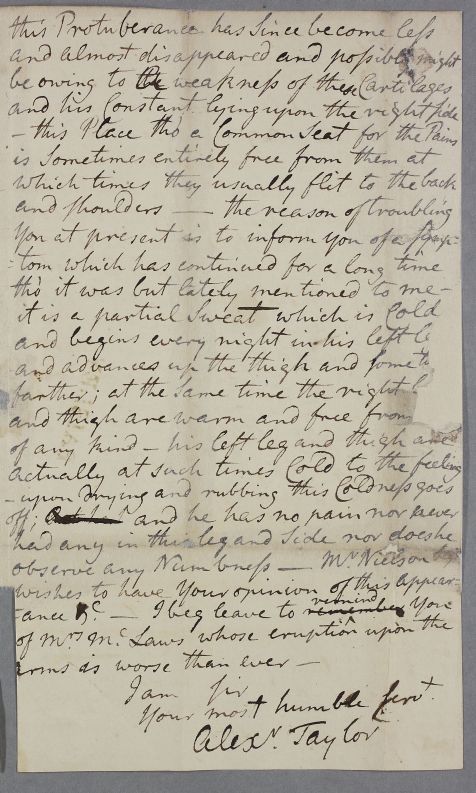 this Protuberance has since become less
and almost disappeared and possibly might
be owing to the weakness of these Cartilages
and his Constant lying upon the right side
- this Place tho' a Common Seat for the Pains
is Sometimes entirely free from them at
which times they usually flit to the back
and shoulders — the reason of troubling
You at present is to inform you of a Symp-
-tom which has continued for a long time
tho' it was but lately mentioned to me -
it is a partial Sweat which is Cold
and begins every night in his left
and advances up the thigh and
farther; at the Same time the right
and thigh are warm and free from
of any kind - his left leg and thigh are
actually at such times Cold to the feeling
- upon drying and rubbing this Coldness goes
off; and he has no pain nor ever
had any in this leg and Side nor does he
observe any Numbness — Mr. Nielson
wishes to have Your opinion of this appear-
-ance &c. — I beg leave to remind You
of Mrs. Mc. Laws whose eruption upon the
arms is worse than ever —
I am Sir
Your most humble Servt.
Alexr. Taylor